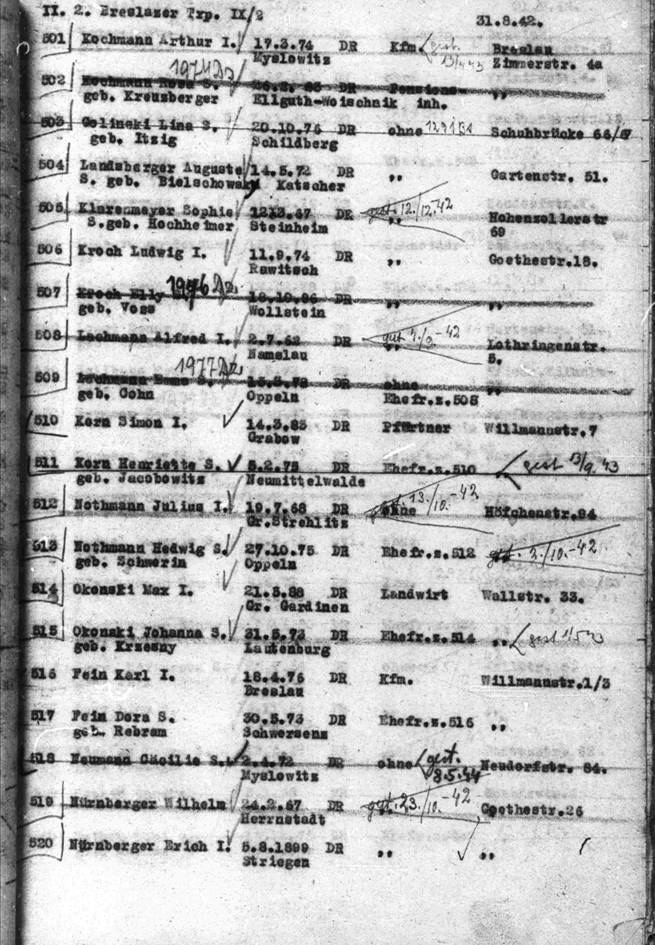 II. 2. Breslauer Trp. IX/2 31.8.42.
501 Kochmann Arthur I. 17.3.74 DR Kfm. gest. 13/4 43 Breslau
Myslowitz Zimmerstr. 4a
502 Kochmann Rosa S. 1974 DR Pensions-
geb. Kreuzberger Ellguth-Woischnik inh. ,,
503 Golinski Lina S. 20.10.76 DR ohne Schuhbrücke 66/67
geb. Itzig Schildberg
504 Landsberger Auguste 14.5.72 DR ,, Gartenstr. 51.
S. geb. Bielschowsky Katscher
505 Klarenmeyer Sophie DR gest. 12./12.42 Hohenzollerstr
S.geb. Hochheimer Steinheim ,, 69
506 Kroch Ludwig I. 11.9.74 DR ,, Goethestr.18.
Rawitsch
507 Kroch Elly 1976 18.10.86 DR ,, ,,
geb. Voss Wollstein
508 Lachmann Alfred I. 2.7.62 DR gest. -42 Lothringenstr.
Namslau ,, 5.
509 Lachmann S. 1977 DR ohne ,,
geb. Cohn Oppeln Ehefr.z.508
510 Korn Simon I. 14.3.83 DR Pförtner Willmannstr.7
Grabow
511 Korn Henriette S. 5.2.75 DR Ehefr.z.510 ,, gest 13/9. 43
geb. Jacobowitz Neumittelwalde
512 Nothmann Julius I. 19.7.68 DR ohne gest. 13./10.-42 Höfchenstr.94
Gr.Strehlitz
513 Nothmann Hedwig S. 27.10.75 DR Ehefr.z.512 ,, gest. 2./10.-42
geb. Schwerin Oppeln
514 Okonski Max I. 21.3.88 DR Landwirt Wallstr. 33.
Gr. Gardinen
515 Okonski Johanna S. 31.5.73 DR Ehefr.z.514 ,, gest
geb. Krzesny Lautenburg
516 Fein Karl I. 18.4.76 DR Kfm. Willmannstr.1/3
Breslau
517 Fein Dora S. 30.5.73 DR Ehefr.z.516 ,,
geb. Rebran Schwersenz
518 Neumann Cäcilie S. 2.4.72 DR ohne gest. 8.5.44 Neudorfstr. 84.
Myslowitz
519 Nürnberger Wilhelm 24.2.67 DR gest. 23./10.-42 Goethestr.26
Herrnstadt
520 Nürnberger Erich I. 5.8.1899 DR ,, ,,
Striegen